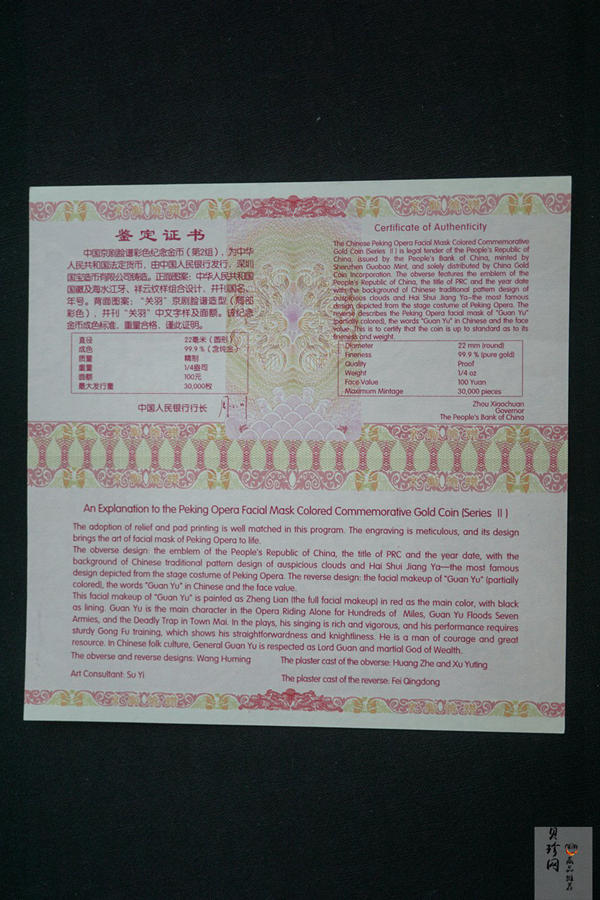 鉴定证书
中国京剧脸谱彩色纪念金币（第2组），为中华
人民共和国法定货币，由中国人民银行发行，深圳
国宝造币有限公司铸造。正面图案：中华人民共和国
国徽及海水江牙、祥云纹样组合设计，并刊国名、
年号。背面图案：“关羽”京剧脸谱造型（局部
彩色），并刊“关羽”中文字样及面额。该纪念
金币成色标准，重量合格，谨此证明。
直径 22毫米（圆形）
成色 99.9％（含纯金）
质量 精制
重量 1/4盎司
面额 100元
最大发行量 30,000枚
中国人民银行行长
Certificate of Authenticity
The Chinese Peking Opera Facial Mask Colored Commemorative
Gold Coin (Series Ⅱ) is legal tender of the People's Republic of
China, issued by the People's Bank of China, minted by
Shenzhen Guobao Mint, and solely distributed by China Gold
Coin Incorporation. The obverse features the emblem of the
People's Republic of China, the title of PRC and the year date
with the background of Chinese traditional pattern design of
auspicious clouds and Hai Shui Jiang Ya—the most famous
design depicted from the stage costume of Peking Opera. The
reverse describes the Peking Opera facial mask of "Guan Yu"
(partially colored), the words "Guan Yu" in Chinese and the face
value. This is to certify that the coin is up to standard as to its
fineness and weight.
Diameter 22 mm (round)
Fineness 99.9 % (pure gold)
Quality Proof
Weight 1/4 oz
Face Value 100 Yuan
Maximum Mintage 30,000 pieces
Zhou Xiaochuan
Governor
The People's Bank of China
An Explanation to the Peking Opera Facial Mask Colored Commemorative Gold Coin (Series Ⅱ)
The adoption of relief and pad printing is well matched in this program. The engraving is meticulous, and its design
brings the art of facial mask of Peking Opera to life.
The obverse design: the emblem of the People's Republic of China, the title of PRC and the year date, with the
background of Chinese traditional pattern design of auspicious clouds and Hai Shui Jiang Ya—the most famous
design depicted from the stage costume of Peking Opera. The reverse design: the facial makeup of "Guan Yu" (partially
colored), the words "Guan Yu" in Chinese and the face value.
This facial makeup of "Guan Yu" is painted as Zheng Lian (the full facial makeup) in red as the main color, with black
as lining. Guan Yu is the main character in the Opera Riding Alone for Hundreds of Miles, Guan Yu Floods Seven
Armies, and the Deadly Trap in Town Mai. In the plays, his singing is rich and vigorous, and his performance requires
sturdy Gong Fu training, which shows his straightforwardness and knightliness. He is a man of courage and great
resource. In Chinese folk culture, General Guan Yu is respected as Lord Guan and martial God of Wealth.
The obverse and reverse designs: Wang Huming The plaster cast of the obverse: Huang Zhe and Xu Yuting
Art Consultant: Su Yi The plaster cast of the reverse: Fei Qingdong
贝珍网